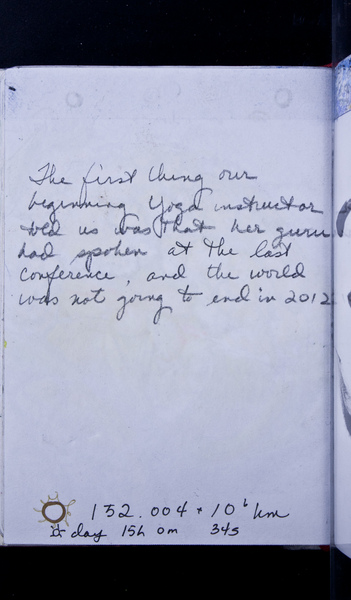 The first thing our
beginning Yoga instructor
told us was that her guru
had spoken at the last
conference, and the world
was not going to end in 2012
152.004 * 10⁶ km
day 15h 0m 34s